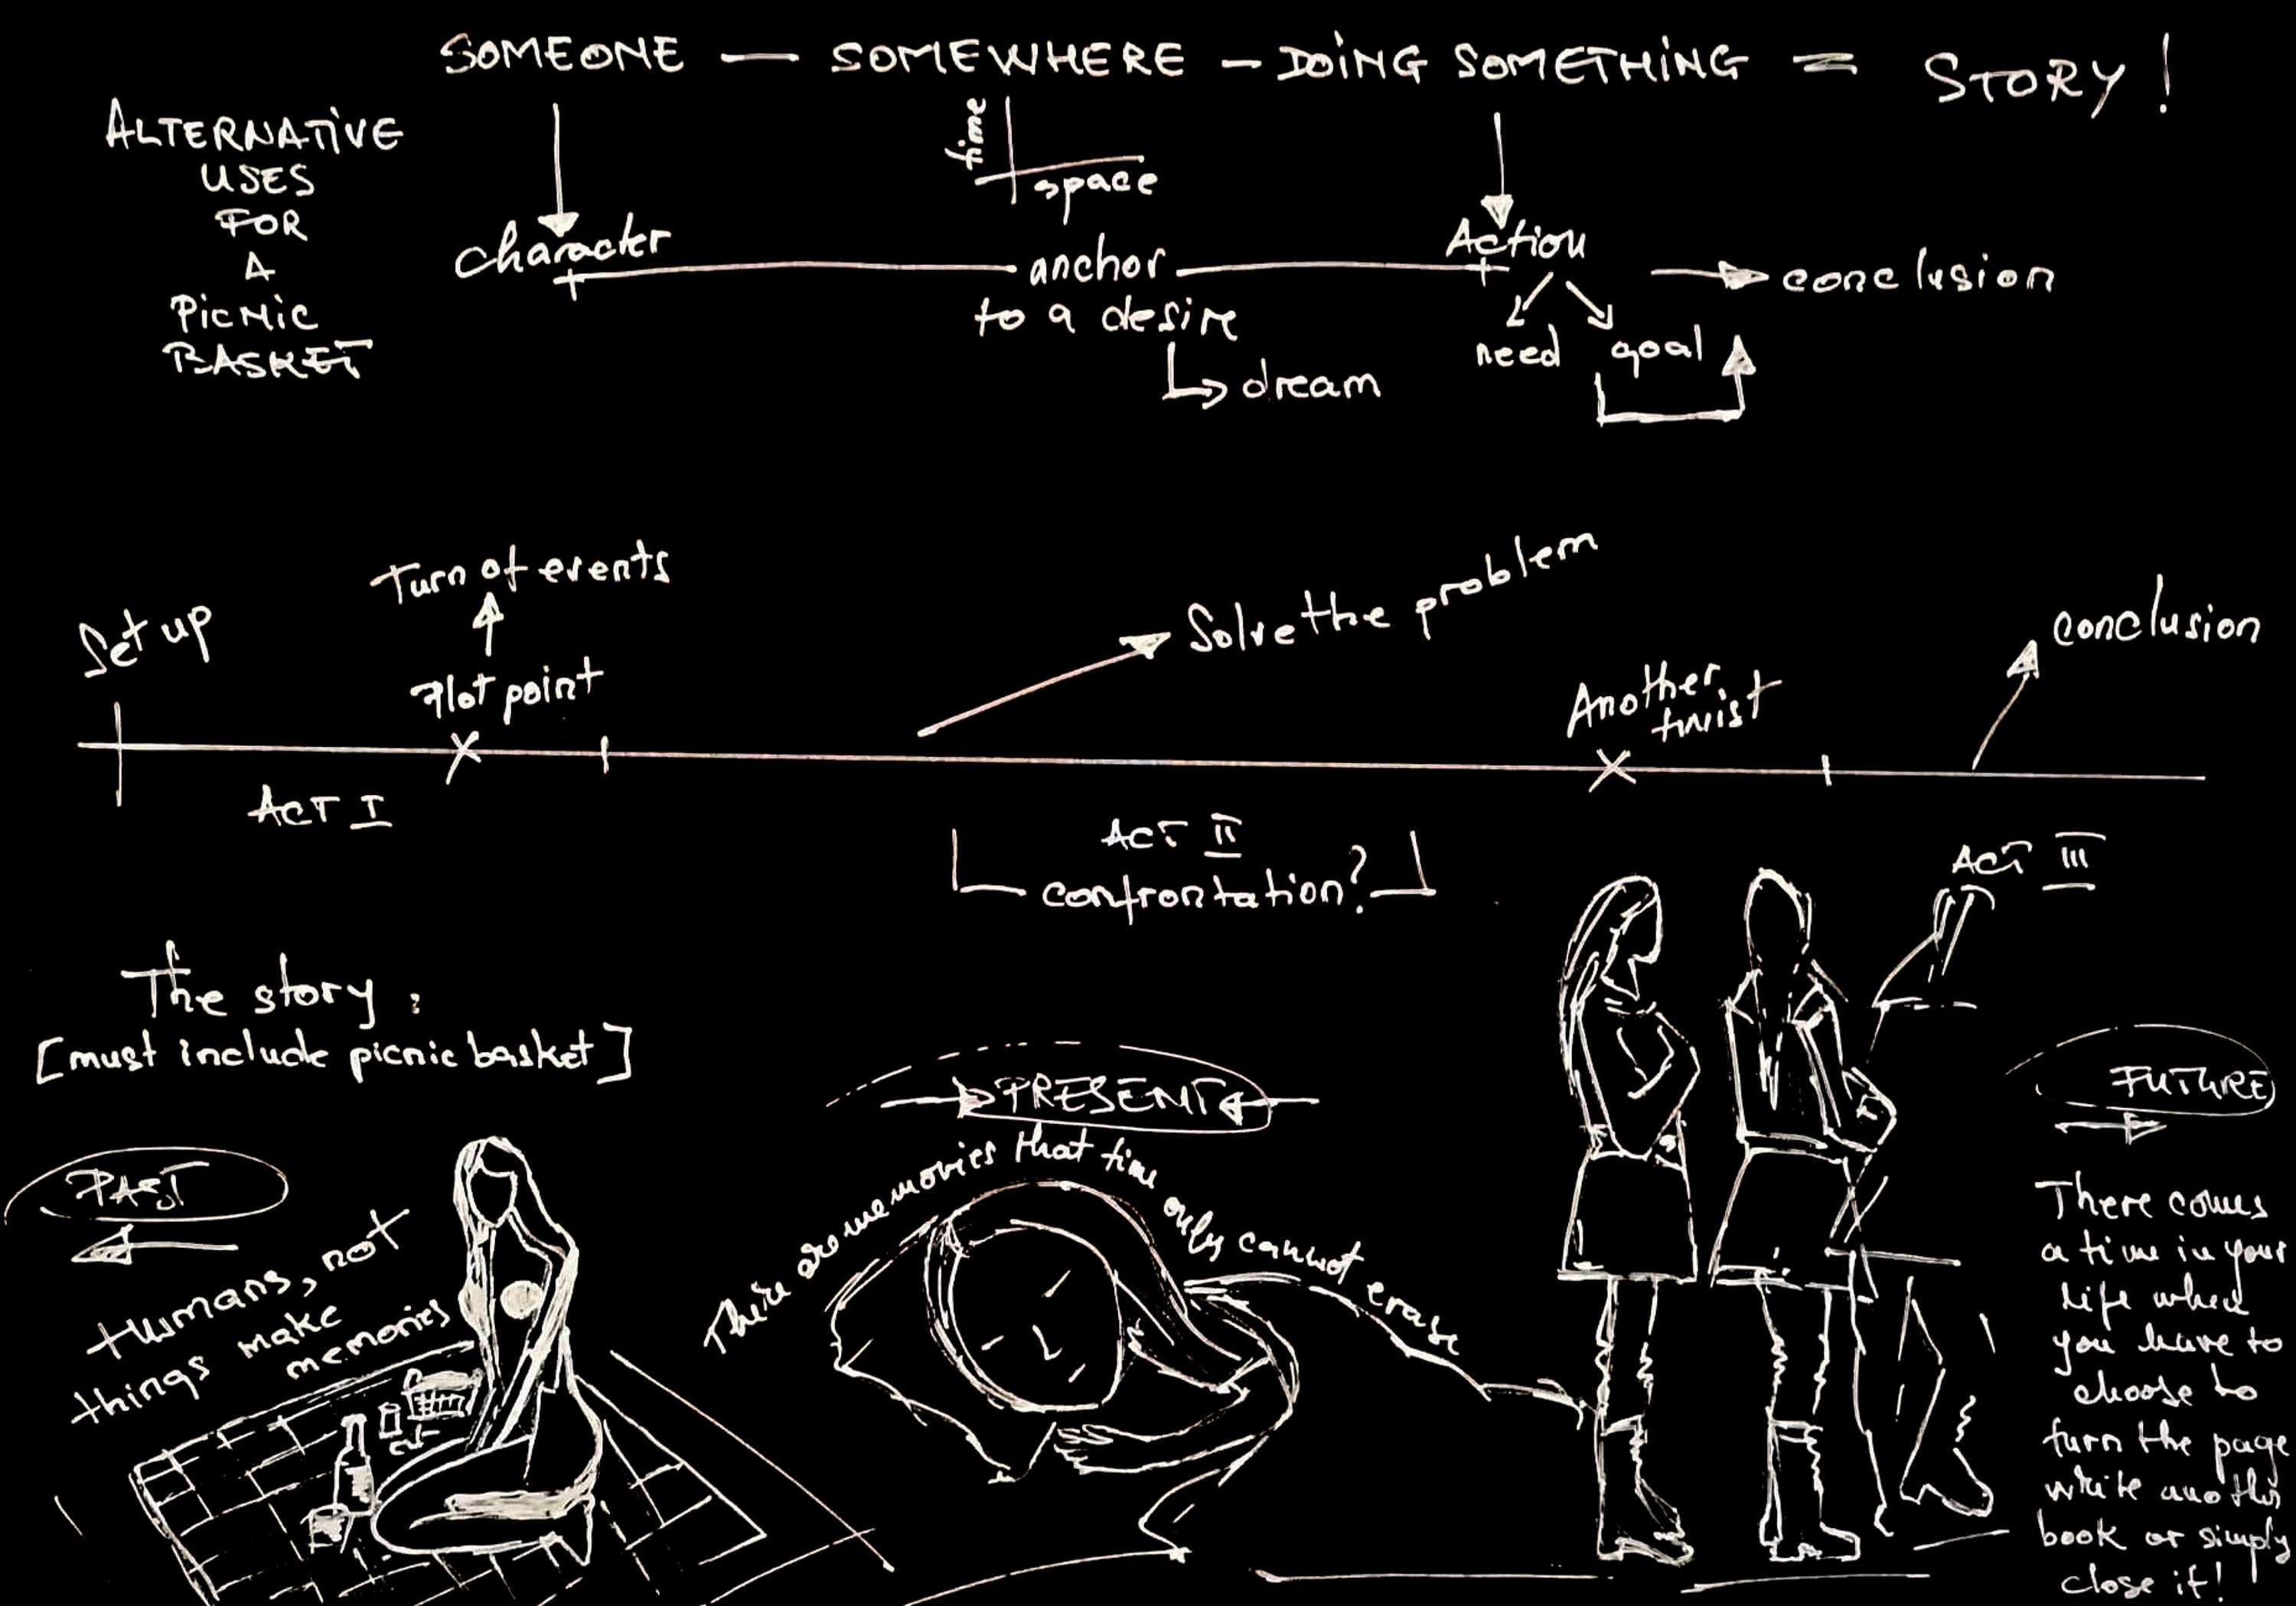 SOMEONE — SOMEWHERE – DOING SOMETHING = STORY!
ALTERNATIVE
USES
FOR
A
PICNIC
BASKET
time
space
character
anchor
to a desire
dream
Action
need
goal
conclusion
Set up
Turn of events
Plot point
Solve the problem
Another
twist
conclusion
ACT I
ACT II
confrontation?
ACT III
The story:
[must include picnic basket]
PAST
Humans, not
things make
memories
PRESENT
There are memories that time only cannot erase
FUTURE
There comes
a time in your
life when
you have to
choose to
turn the page
write another
book or simply
close it!